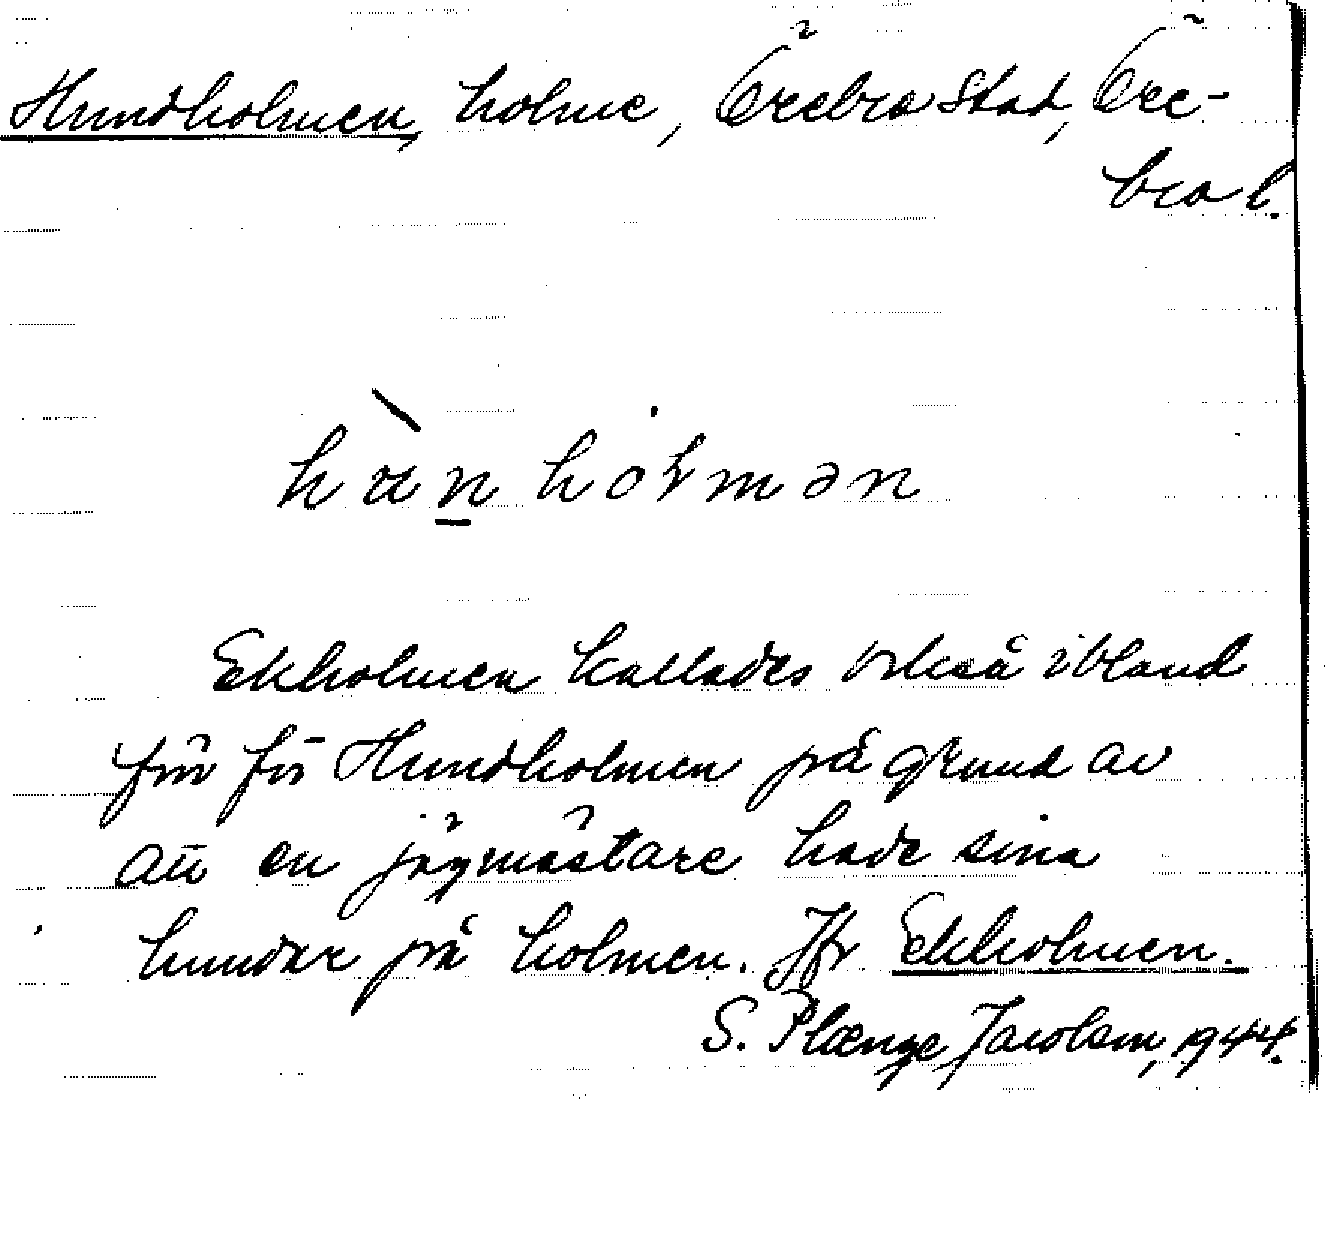 Hundholmen, holme, Örebro stad, Öre-
bro l.
hùnhólmən
Ekholmen kallades också ibland
förr för Hundholmen på grund av
att en jägmästare hade sina
hundar på holmen. Jfr Ekholmen.
S. Plænge Jacobson, 1944.